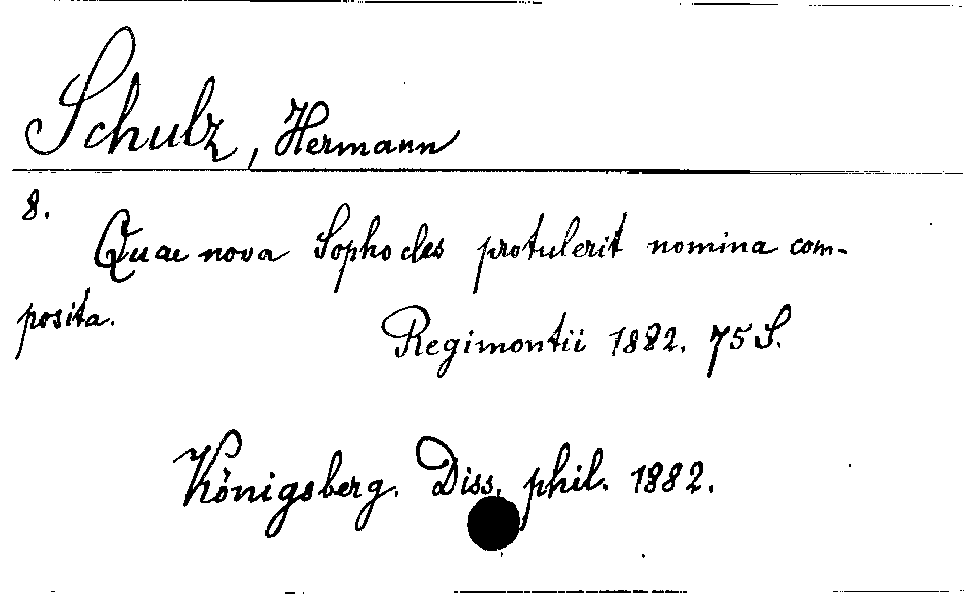 Schulz, Hermann
8.
Quae nova Sophocles protulerit nomina com-
posita.
Regimontii 1882. 75 S.
Königsberg. Diss. phil. 1882.